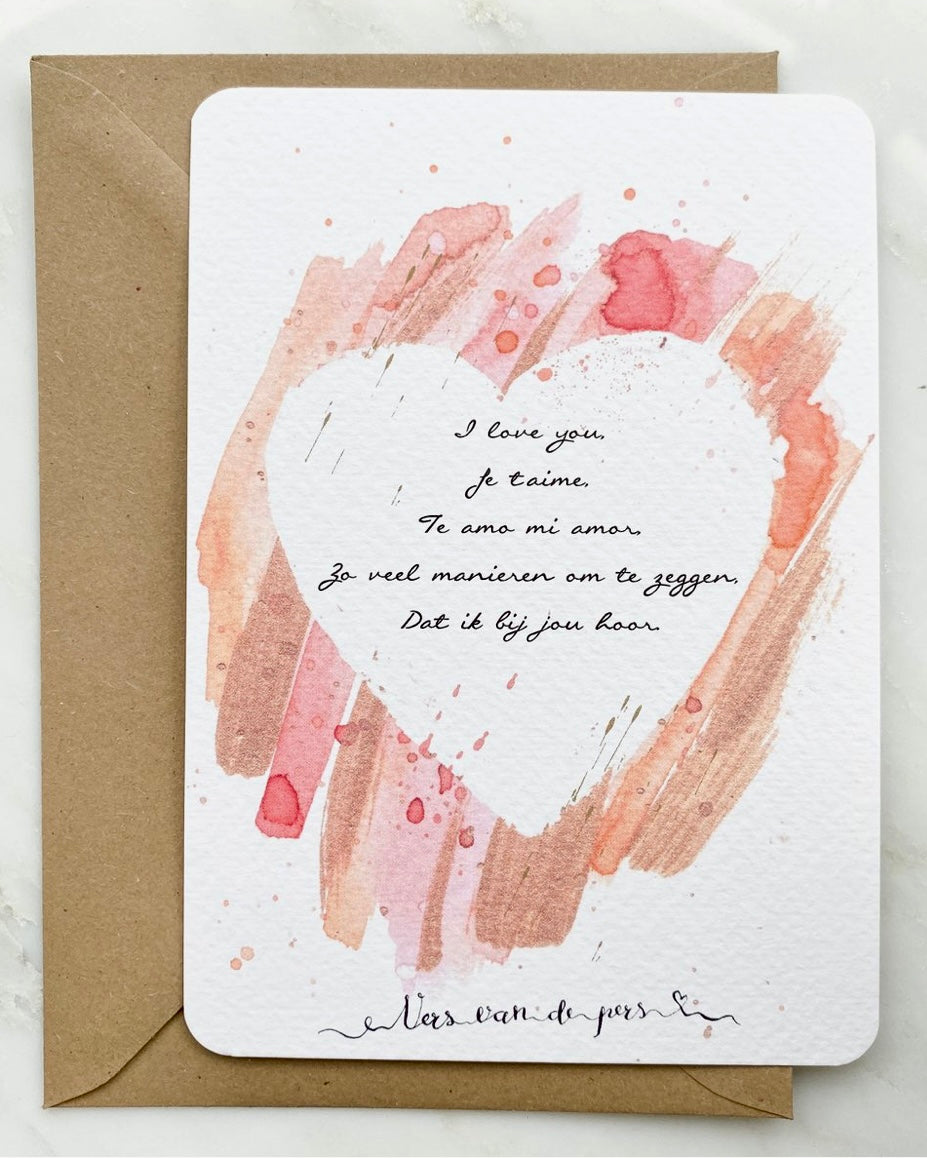 I love you,
Je t'aime,
Te amo mi amor,
Zo veel manieren om te zeggen,
Dat ik bij jou hoor.
Vers van de pers